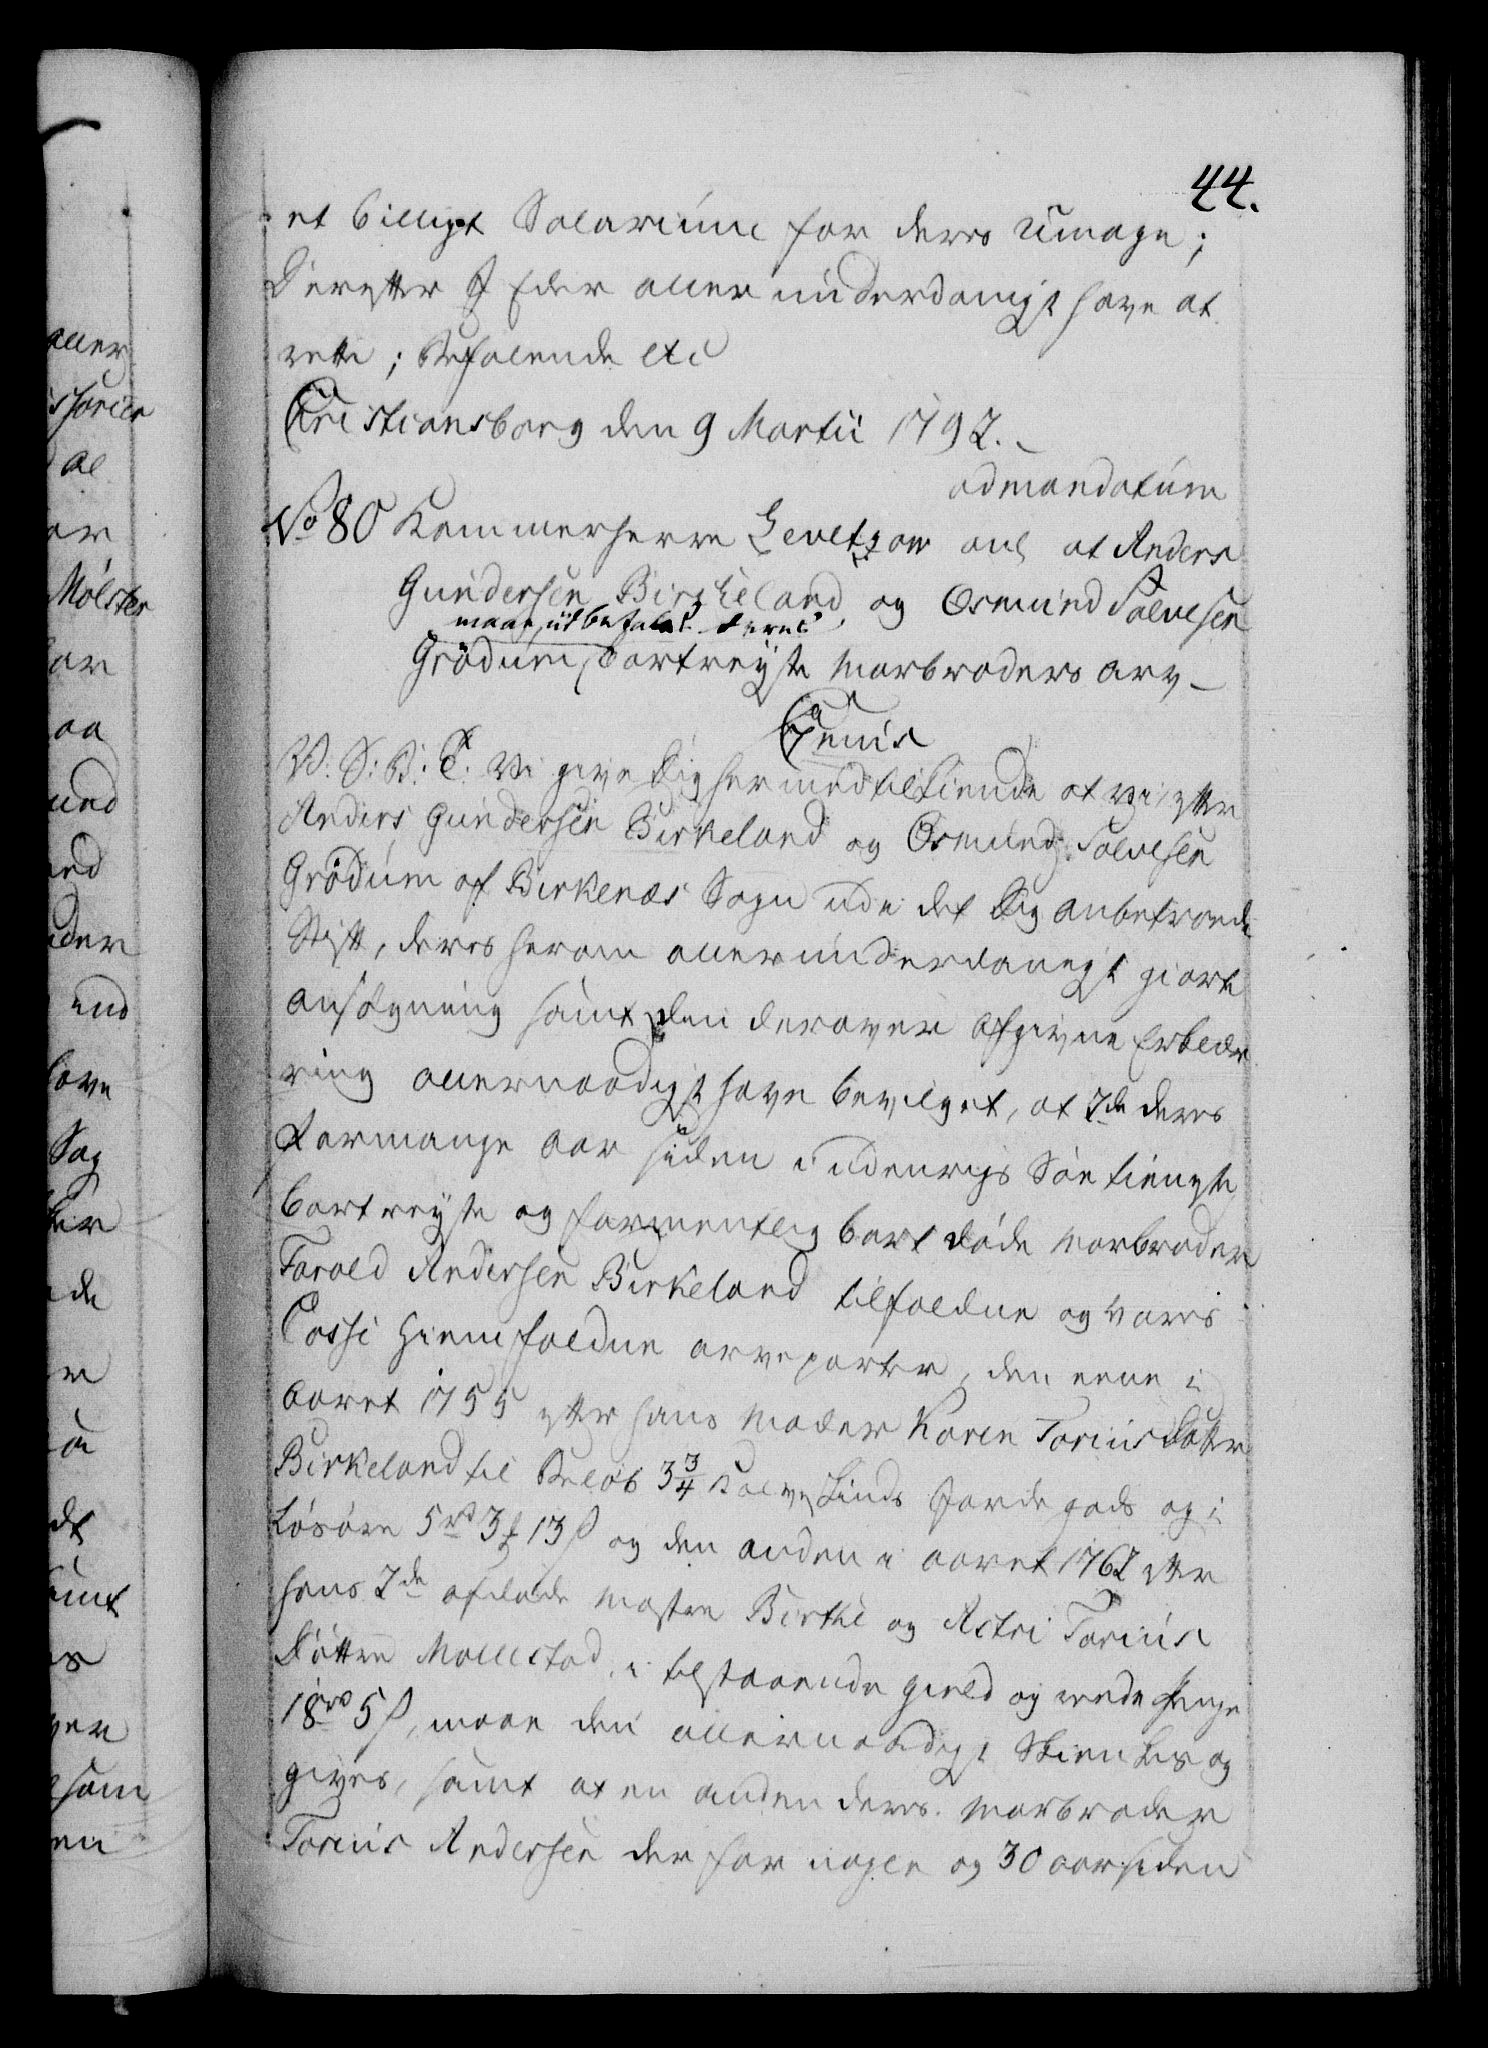 44.
et billigt Salarium for deres umage;
Derefter I Eder allerunderdanigst have at
rette; Befalende etc
Christiansborg den 9 Martii 1792.
ad mandatum
No 80 Kammerherre Levetzow anl at Anders
Gundersen Birckeland og Osmund Salvesen
maae udbetales deres
Grødum, bortreyste Morbroders Arv
C: d: 7enis
V: S: B: T: Vi give Dig hermed tilkiende at vi, efter
Anders Gundersen Birkeland og Osmund Salvesen
Grødum af Birkenæs Sogn udi det Dig anbetroede
Stift, deres herom allerunderdanigst giorte
ansøgning samt den derover afgivne Erklæ-
ring allernaadigst have bevilget, at 2de deres
formange Aar siden i udenrigs Søe tieneste
bortreyste og formentlig bort døde Morbroder
Tarald Andersen Birkeland tilfaldne og vores
Casse hiemfaldne arveparter, den eene i
Aaret 1755 efter hans Moder Karen Tariusdatter
Birkeland til Beløb 3 3/4 Kalveskinds Jordegods og i
Løsøre 5 rd 3 ₰ 13 ß og den anden i aaret 1762 efter
hans 2de afdøde Mostre Birthe og Astri Tarius
Døttre Mollestad, i tilstaaende Gield og rede Penge
18 rd 5 ß, maae dem allernaadigst skienkes og
gives, samt at en anden deres Morbroder
Tarius Andersen der for nogle og 30 aar siden